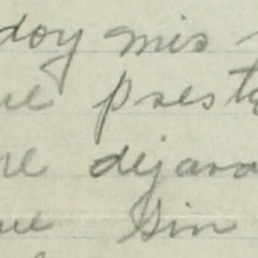 doy mis
ue prest
me dejara
ue Sin